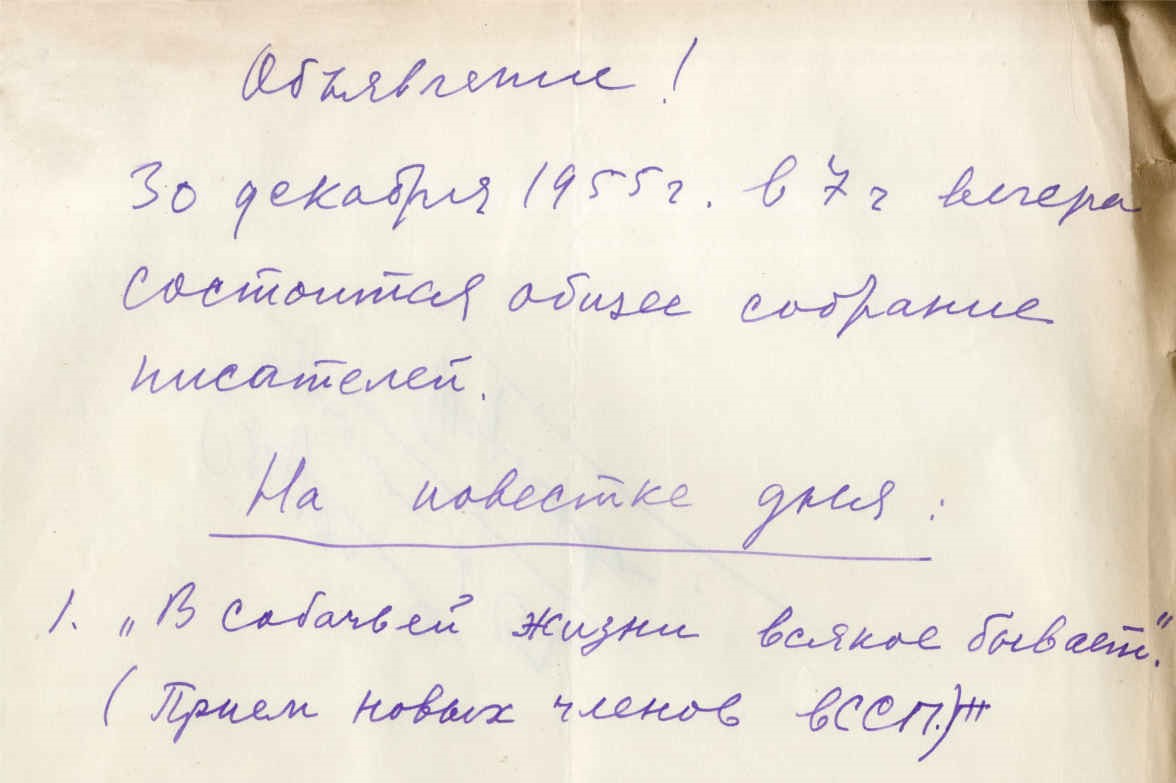 Объявление!
30 декабря 1955 г. в 7 ч вечера
состоится общее собрание
писателей.
На повестке дня:
1. „В собачьей жизни всякое бывает."
(Прием новых членов в ССП.)